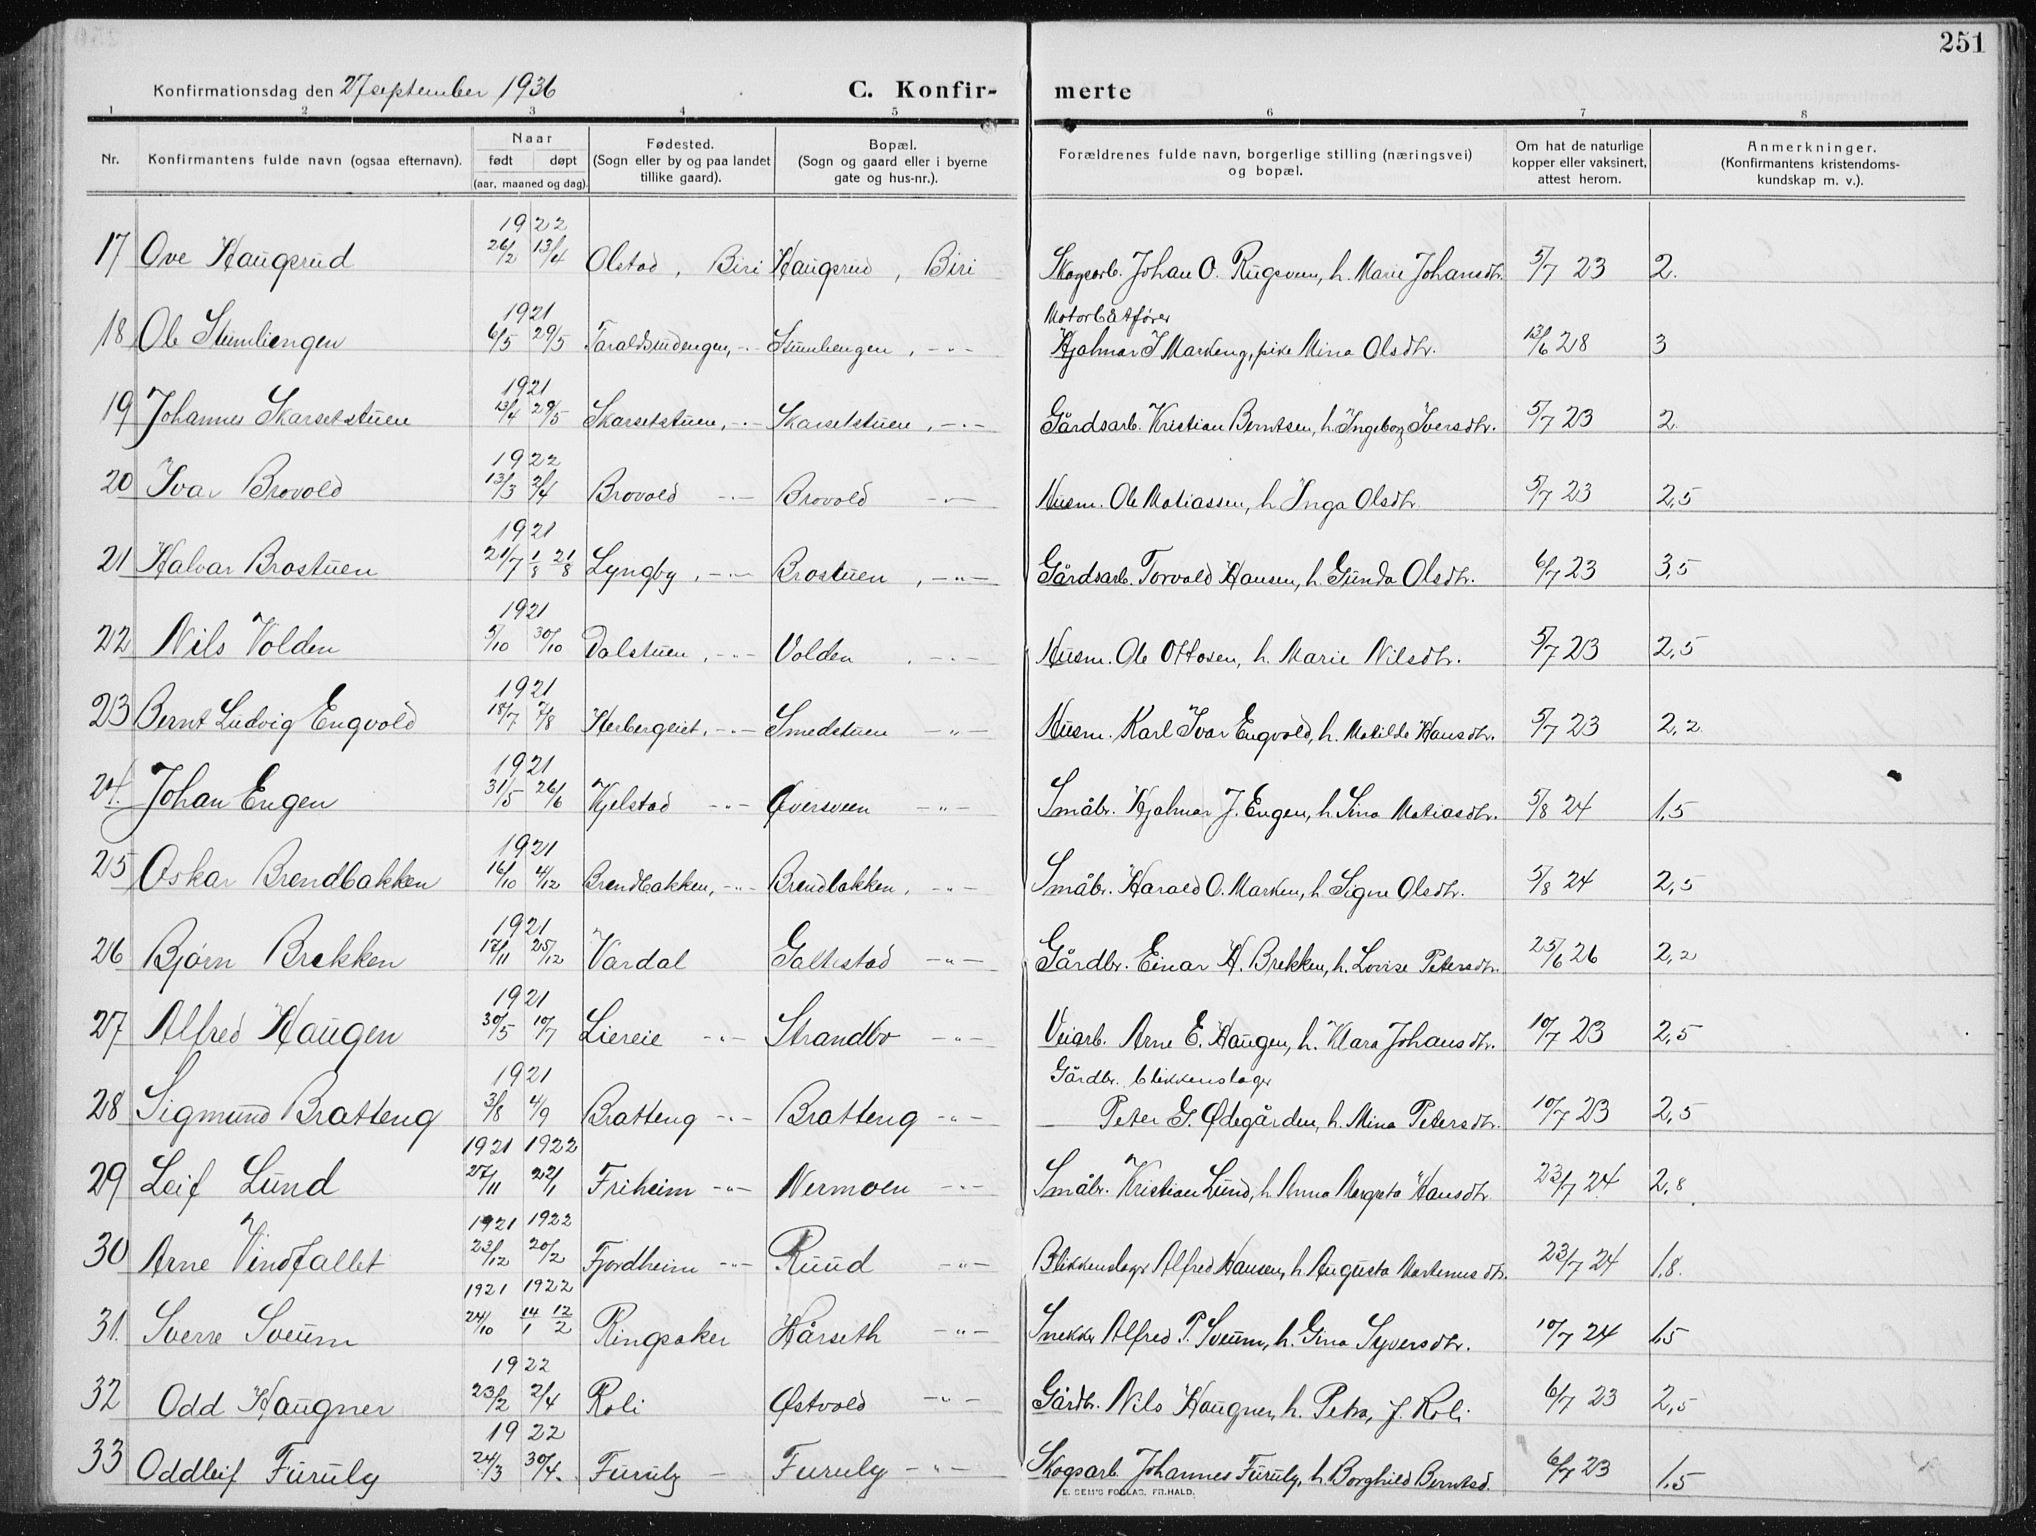 251
Konfirmationsdag den 27 september 1936 C. Konfir- merte
1 2 3 4 5 6 7 8
Nr. Konfirmantens fulde navn (ogsaa efternavn). Naar født døpt (aar, maaned og dag). Fødested. (Sogn eller by og paa landet tillike gaard). Bopæl. (Sogn og gaard eller i byerne gate og hus-nr.). Forældrenes fulde navn, borgerlige stilling (næringsvei) og bopæl. Om hat de naturlige kopper eller vaksinert, attest herom. Anmerkninger. (Konfirmantens kristendoms- kundskap m. v.).
1922
17 Ove Haugsrud 26/2 13/4 Olstad, Biri Haugsrud, Biri Skogsarb. Johan O. Rugsveen, h. Marie Johansdtr. 5/7 23 2.
1921 Motorbåtfører
18 Ole Stumliengen 6/5 29/5 Taraldsrudengen, -"- Stumliengen, -"- Hjalmar J Markeng, pike Mina Olsdtr. 13/6 28 3
1921
19 Johannes Skarsetstuen 13/4 29/5 Skarsetstuen, -"- Skarsetstuen, -"- Gårdsarb. Kristian Berntsen, h. Ingeborg Iversdtr. 5/7 23 2
1922
20 Ivar Brovold 13/3 2/4 Brovold -"- Brovold -"- Husm. Ole Matiassen, h Inga Olsdtr. 5/7 23 2,5
1921
21 Halvar Brostuen 21/7 1/8 21/8 Lyngby, -"- Brostuen, -"- Gårdsarb. Torvald Hansen, h. Gunda Olsdtr. 6/7 23 3,5
1921
22 Nils Volden 5/10 30/10 Dalstuen, -"- Volden, -"- Husm. Ole Ottosen, h. Marie Nilsdtr. 5/7 23 2,5
1921
23 Bernt Ludvig Engvold 18/7 7/8 Herberget, -"- Smedstuen -"- Husm. Karl Ivar Engvold, h. Matilde Hansdtr. 5/7 23 2,2
1921
24. Johan Engen 31/5 26/6 Kjelstad -"- Øversveen -"- Småbr. Hjalmar J. Engen, h Sina Matiasdtr. 5/8 24 1,5
1921
25 Oskar Brendbakken 16/10 4/12 Brendbakken, -"- Brendbakken, -"- Småbr. Harald O. Marken, h Signe Olsdtr. 5/8 24 2,5
1921
26 Bjørn Brekken 17/11 25/12 Vardal Galtestad -"- Gårdbr. Einar H. Brekken, h. Lovise Petersdtr. 25/6 26 2,2
1921
27 Alfred Haugen 30/5 10/7 Liereie -"- Strandbo -"- Veiarb. Arne E. Haugen, h. Klara Johansdtr. 10/7 23 2,5
1921 Gårdbr. blikkenslager
28 Sigmund Bratteng 3/8 4/9 Bratteng -"- Bratteng -"- Peter G. Ødegården, h. Mina Petersdtr. 10/7 23 2,5
1921 1922
29 Leif Lund 27/11 22/1 Friheim -"- Nermoen -"- Småbr. Kristian Lund, h Anna Margreta Hansdtr. 23/7 24 2,8
1921 1922
30 Arne Vindfallet 23/12 20/2 Fjordheim -"- Ruud -"- Blikkenslager Alfred Hansen, h. Augusta Martinusdtr. 23/7 24 1,8.
1921 1922
31. Sverre Sveum 24/10 14/1 12/2 Ringsaker Hårseth -"- Snekker Alfred P. Sveum, h. Gina Syversdtr. 10/7 24 1,5
1922
32 Odd Haugner 23/2 2/4 Roli Østvold -"- Gårdbr. Nils Haugner, h. Petra, f. Roli 6/7 23 2,5
1922
33 Oddleif Furuly 24/3 30/4. Furuly - Furuly -"- Skogsarb. Johannes Furuly, h. Borghild Berntsd. 6/7 23 1,5
E. SEM'S FORLAG, FR.HALD.